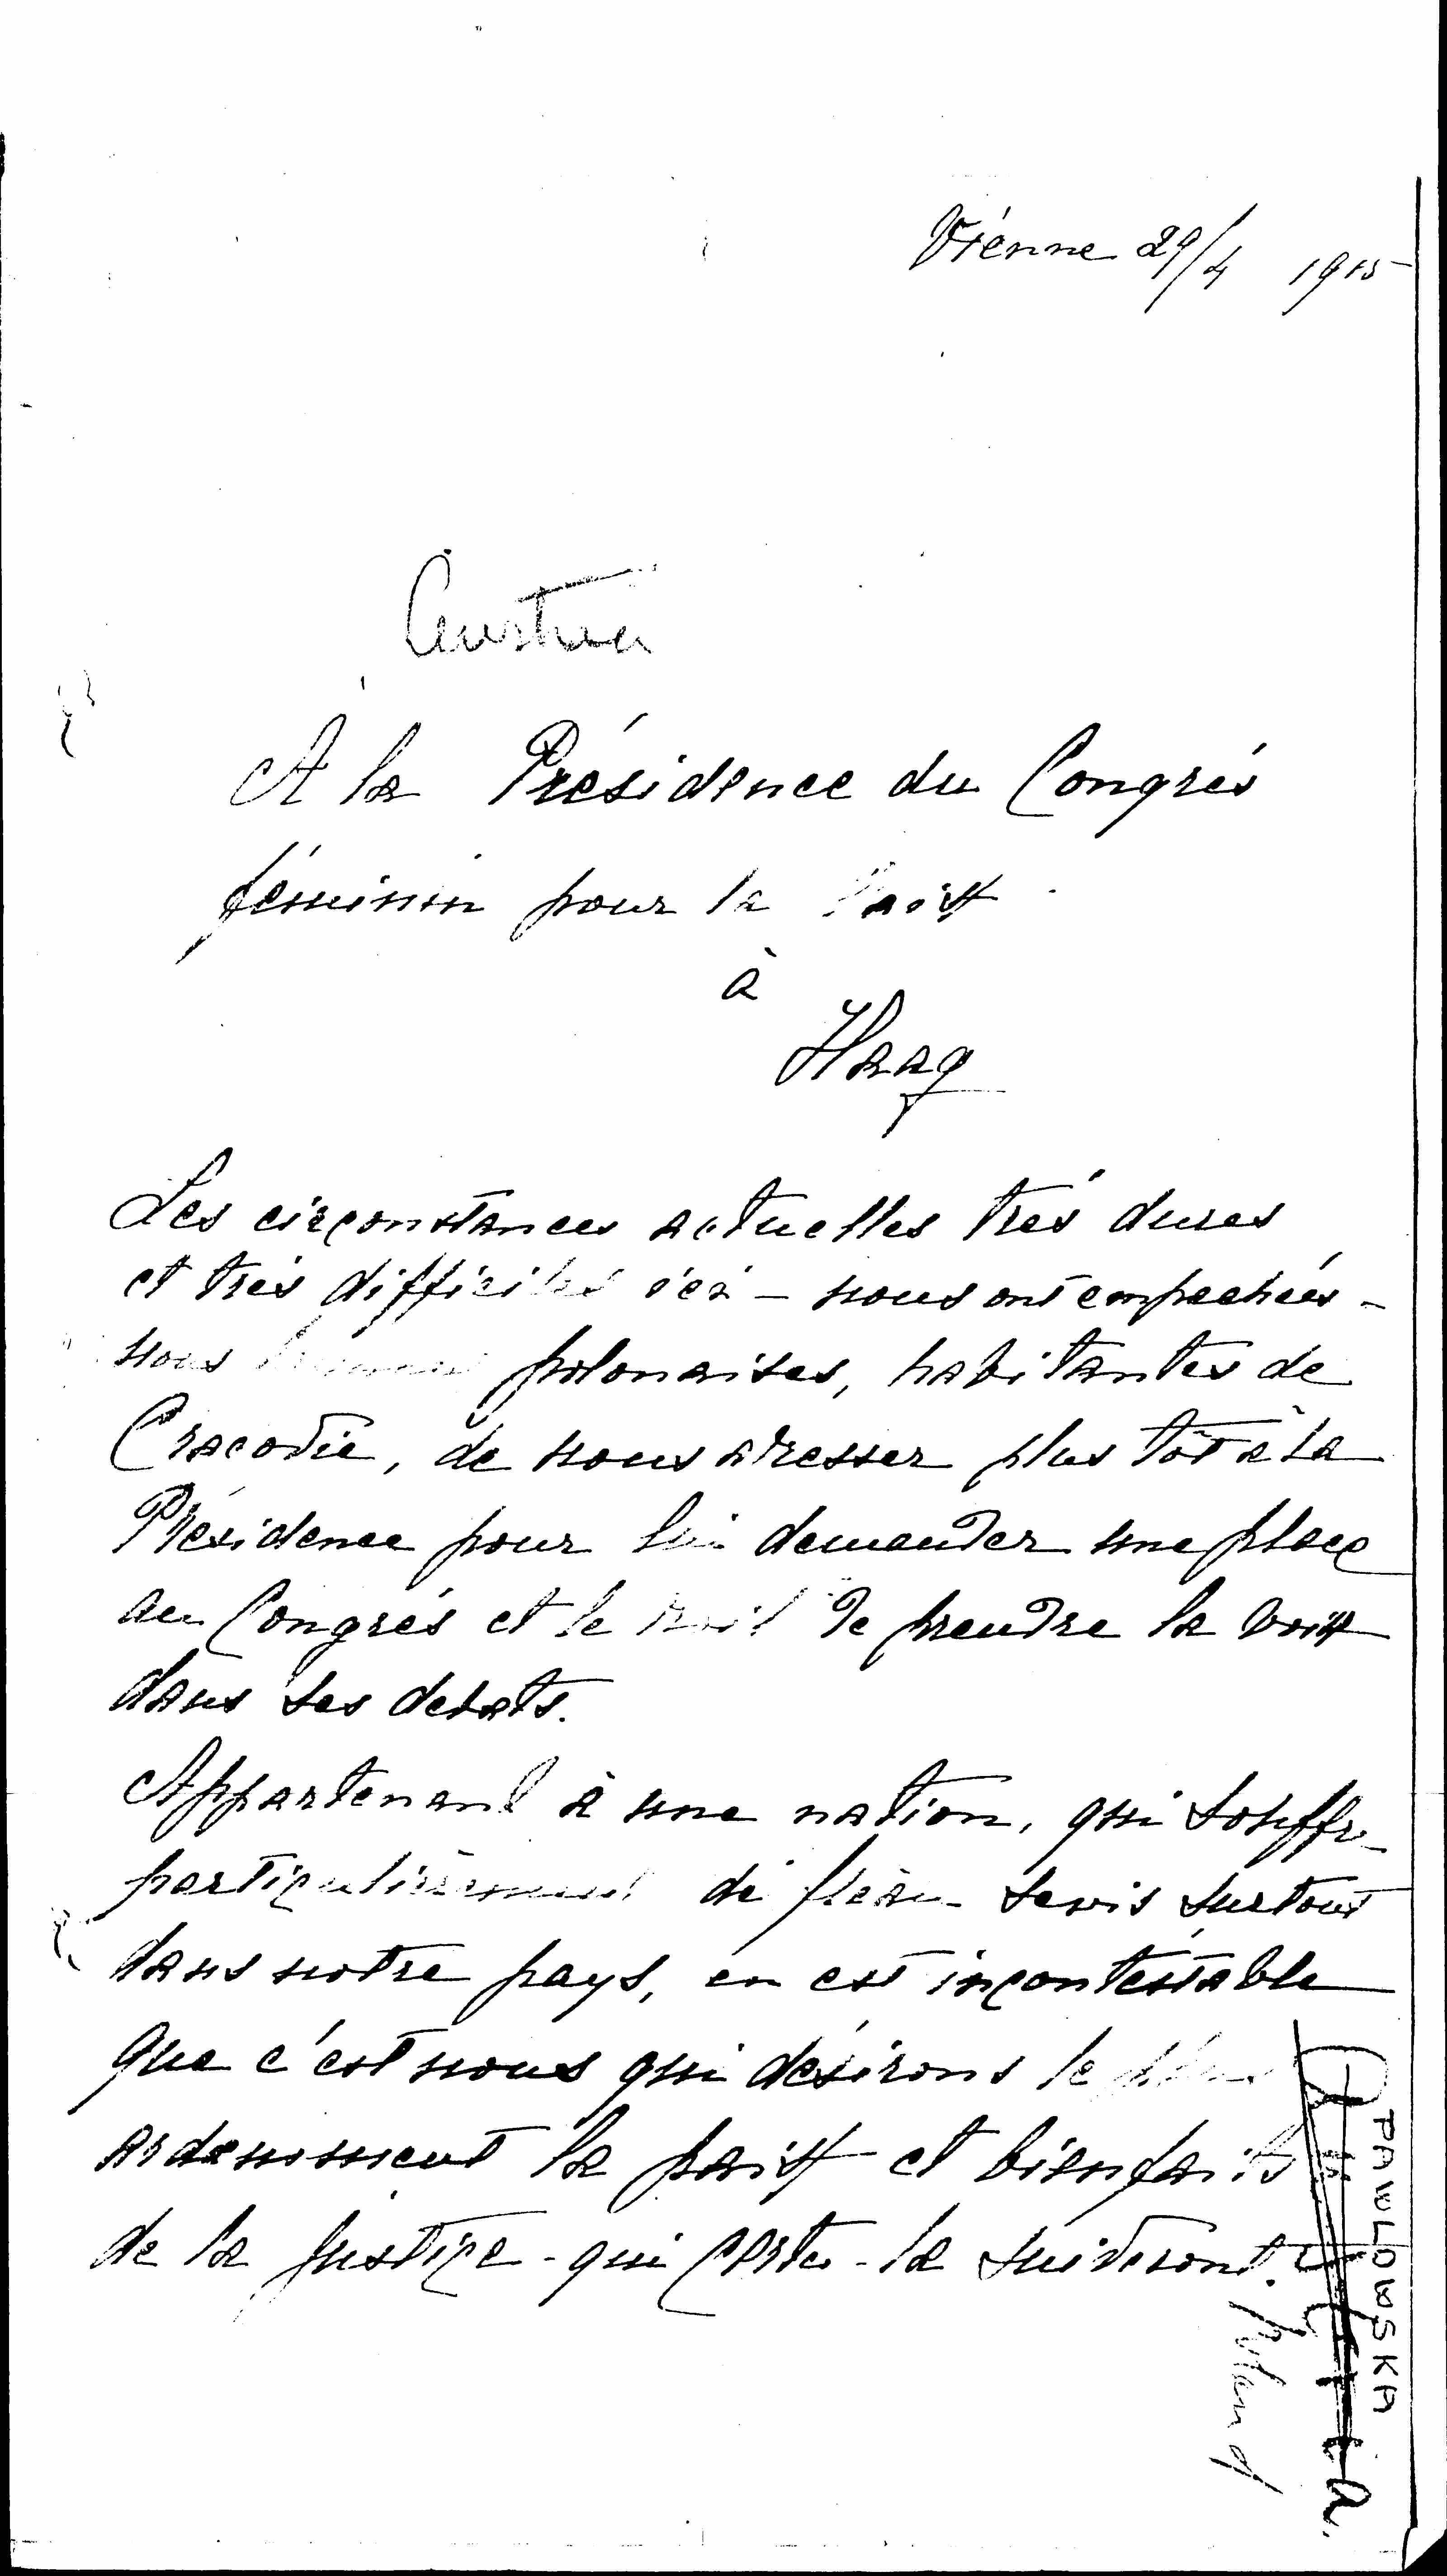 Viénne 29/4 1915
Austria
A la Présidence du Congrés
féminin pour la Paix
à
Haag
Les circonstances actuelles trés dures
et trés difficiles ici - nous ont empechées -
nous femmes polonaises, habitantes de
Cracovie, de nous adresser plus tôt a la
Présidence pour lui demander une place
au Congrés et le droit de prendre la voix
dans ses debats.
Appartenant à une nation, qui souffre
particulièrement de fléau - sevis surtout
dans notre pays, en est incontestable
que c'est nous qui désirons le plus
ardemment la paix et bienfaits
de la justice - qui certes - la suiveront.
PAWLOWSKA
Austria
Poland